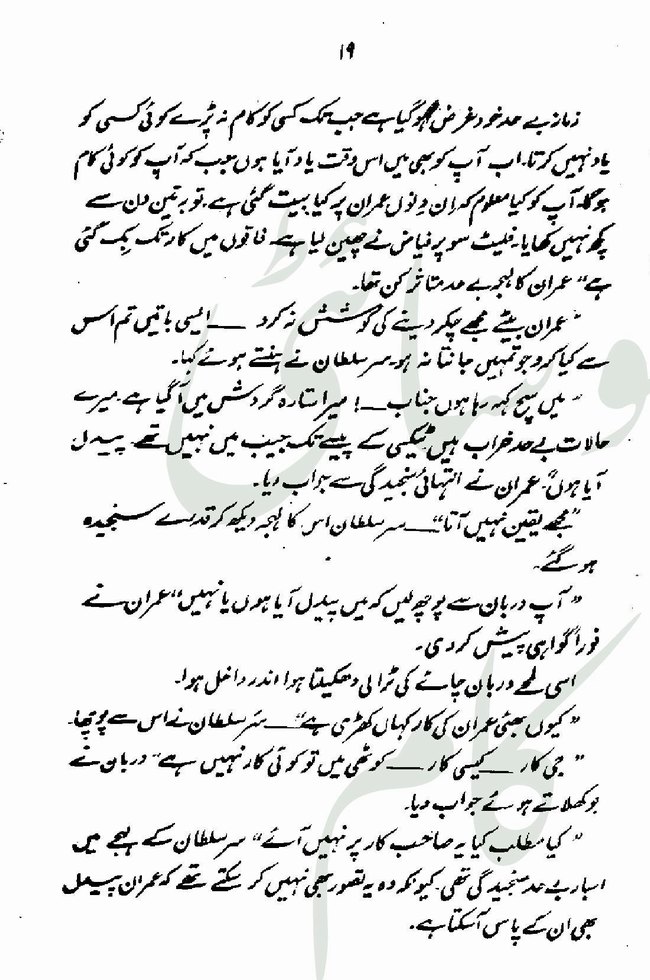 ۱۹
زمانہ بے حد خود غرض ہو گیا ہے جب تک کسی کو کام نہ پڑے کوئی کسی کو
یاد نہیں کرتا۔ اب آپ کو بھی میں اس وقت یاد آیا ہوں جب کہ آپ کو کوئی کام
ہوگا۔ آپ کو کیا معلوم کہ ان دنوں عمران پر کیا بیت گئی ہے۔ تو بر تین دن سے
کچھ نہیں کھایا۔ فلیٹ سوپر فیاض نے چھین لیا ہے۔ فاقوں میں کار تک بک گئی
ہے“ عمران کا لہجہ بے حد متاثر کن تھا۔
”عمران بیٹے مجھے چکر دینے کی کوشش نہ کرو ــــ ایسی باتیں تم اس
سے کیا کرو جو تمہیں جانتا نہ ہو۔ سر سلطان نے ہنستے ہوئے کہا۔
”میں سچ کہہ رہا ہوں جناب ــــ! میرا ستارہ گردش میں آ گیا ہے۔ میرے
حالات بے حد خراب ہیں۔ ٹیکسی کے پیسے تک جیب میں نہیں تھے۔ پیدل
آیا ہوں“۔ عمران نے انتہائی سنجیدگی سے جواب دیا۔
”مجھے یقین نہیں آتا“ ــــ سر سلطان اس کا لہجہ دیکھ کر قدرے سنجیدہ
ہو گئے۔
”آپ دربان سے پوچھ لیں کہ میں پیدل آیا ہوں یا نہیں“ عمران نے
فوراً گواہی پیش کر دی۔
اسی لمحے دربان چائے کی ٹرالی دھکیلتا ہوا اندر داخل ہوا۔
”کیوں بھئی عمران کی کار کہاں کھڑی ہے“ ــــ سر سلطان نے اس سے پوچھا۔
”جی کار ــــ کیسی کار ــــ کوٹھی میں تو کوئی کار نہیں ہے“ دربان نے
بوکھلاتے ہوئے جواب دیا۔
”کیا مطلب کیا یہ صاحب کار پر نہیں آئے“ سر سلطان کے لہجے میں
اسبار بے حد سنجیدگی تھی۔ کیونکہ وہ یہ تصور بھی نہیں کر سکتے تھے کہ عمران پیدل
بھی ان کے پاس آ سکتا ہے۔